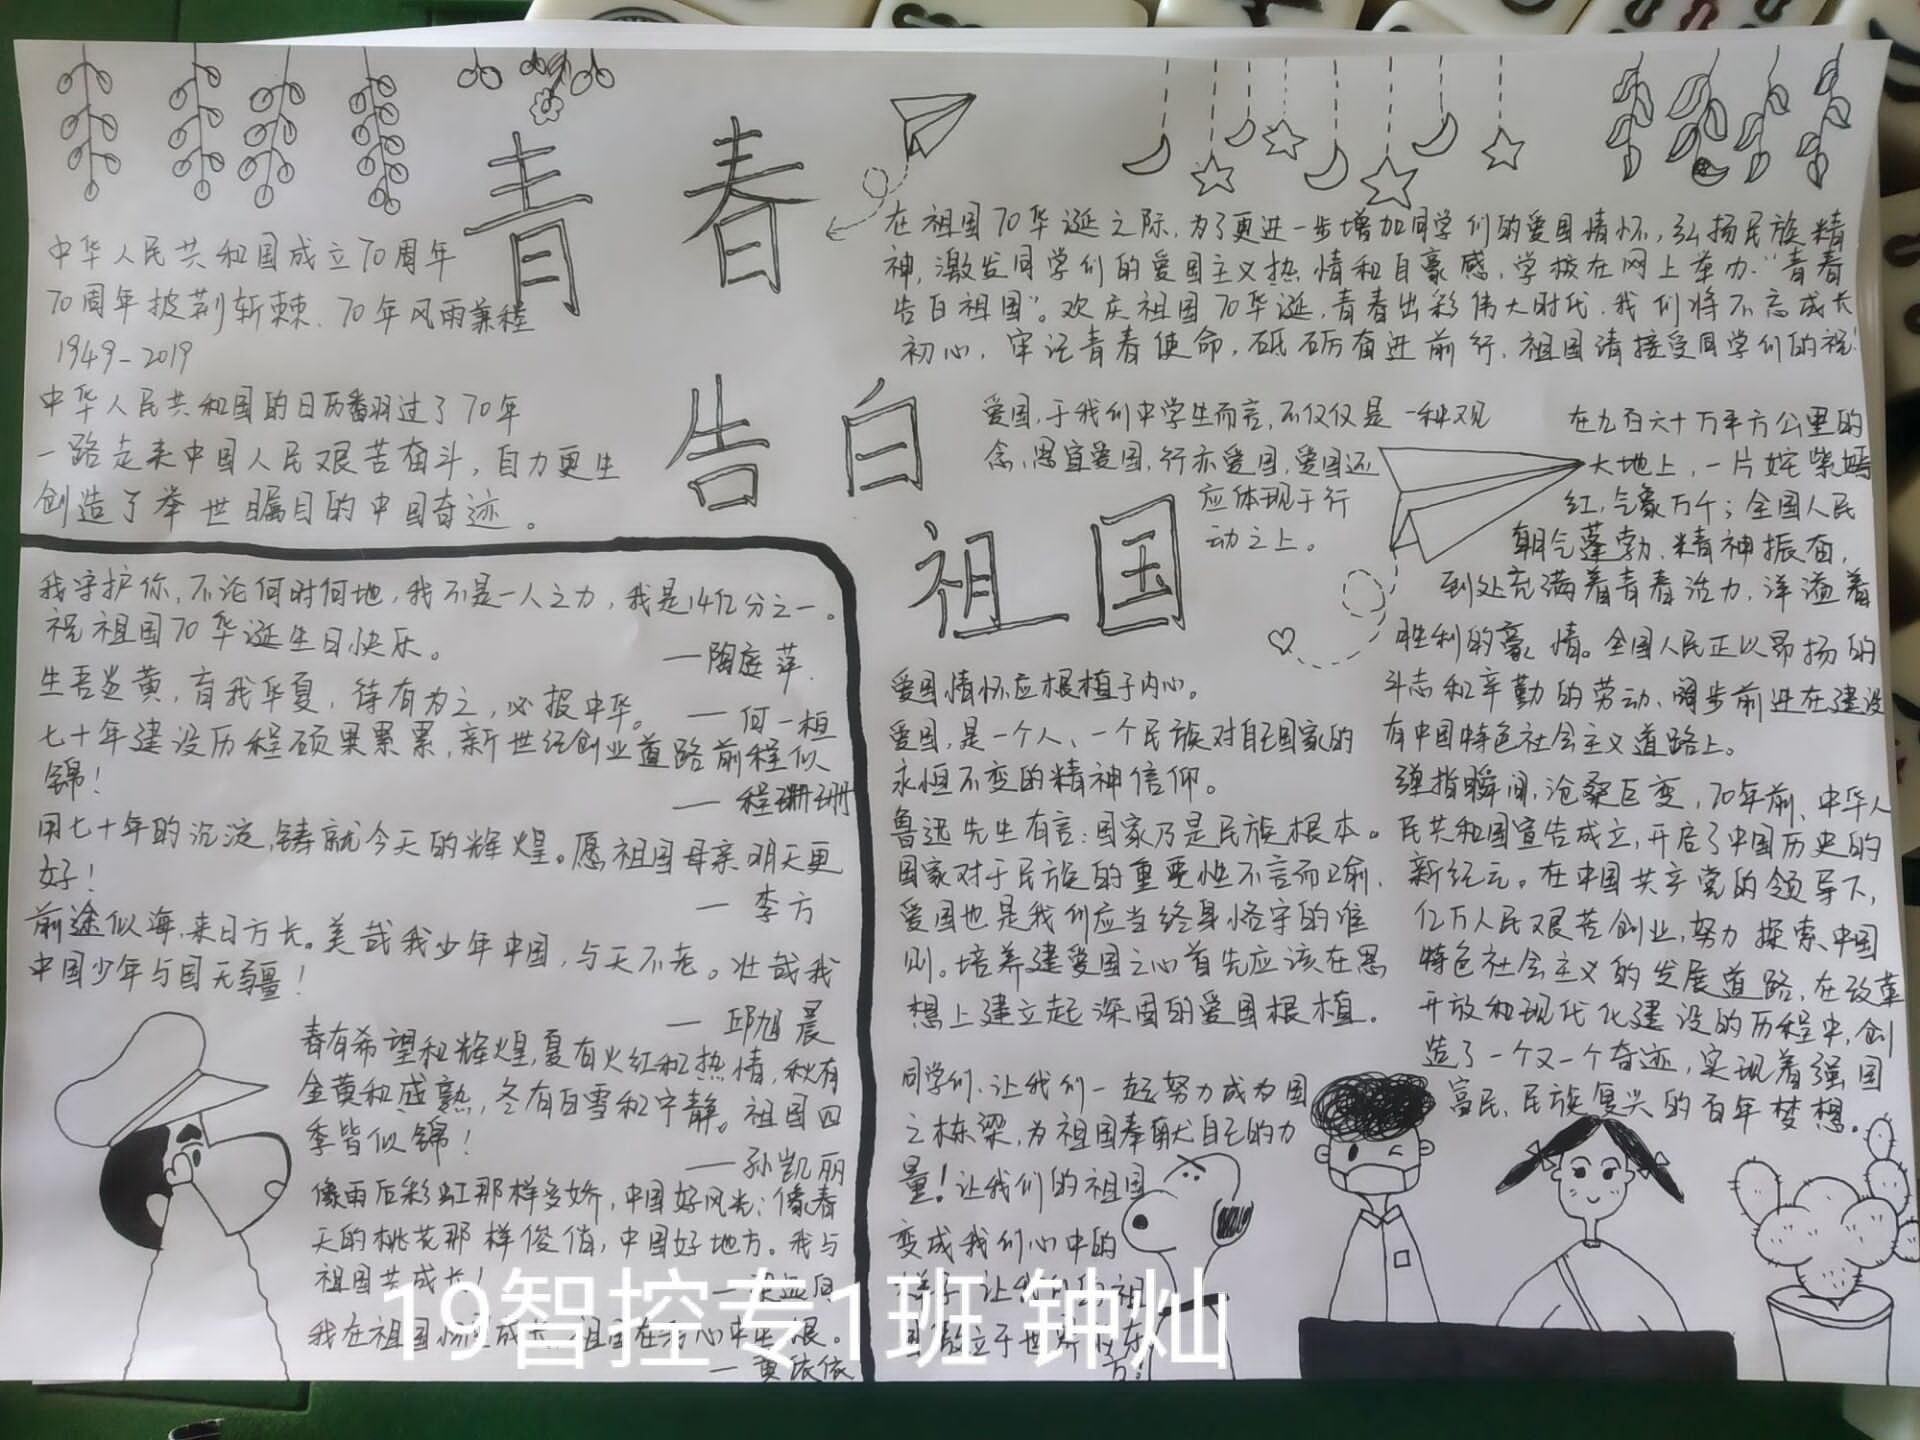 青春
告白
祖国
中华人民共和国成立70周年
70周年披荆斩棘、70年风雨兼程
1949-2019
中华人民共和国的日历翻过了70年
一路走来中国人民艰苦奋斗，自力更生
创造了举世瞩目的中国奇迹。
我守护你，不论何时何地，我不是一人之力，我是14亿分之一。
祝祖国70华诞生日快乐。
—陶庭萍.
生吾炎黄，育我华夏，待有为之，必报中华。
—何一桓
七十年建设历程硕果累累，新世纪创业道路前程似
锦！
—程珊珊
用七十年的沉淀，铸就今天的辉煌。愿祖国母亲明天更
好！
—李方
前途似海，来日方长。美哉我少年中国，与天不老。壮哉我
中国少年与国无疆！
—邱旭晨
春有希望和辉煌，夏有火红和热情，秋有
金黄和成熟，冬有白雪和宁静。祖国四
季皆似锦！
—孙凯丽
像雨后彩虹那样多娇，中国好风光；像春
天的桃花那样俊俏，中国好地方。我与
祖国共成长！
我在祖国怀里成长，祖国在我心中生根。
—黄依依
在祖国70华诞之际，为了更进一步增加同学们的爱国情怀，弘扬民族精
神，激发同学们的爱国主义热情和自豪感，学校在网上举办“青春
告白祖国”。欢庆祖国70华诞，青春出彩伟大时代，我们将不忘成长
初心，牢记青春使命，砥砺奋进前行，祖国请接受同学们的祝！
爱国，于我们中学生而言，不仅仅是一种观
念，思宜爱国，行亦爱国，爱国还
应体现于行
动之上。
爱国情怀应根植于内心。
爱国，是一个人、一个民族对自己国家的
永恒不变的精神信仰。
鲁迅先生有言：国家乃是民族根本。
国家对于民族的重要性不言而喻，
爱国也是我们应当终身恪守的准
则。培养建爱国之心首先应该在思
想上建立起深固的爱国根植。
同学们，让我们一起努力成为国
之栋梁，为祖国奉献自己的力
量！让我们的祖国
变成我们心中的
样子，让我们的祖
国敖立于世界的东
方！
在九百六十万平方公里的
大地上，一片姹紫嫣
红，气象万千；全国人民
朝气蓬勃，精神振奋，
到处充满着青春活力，洋溢着
胜利的豪情。全国人民正以昂扬的
斗志和辛勤的劳动、阔步前进在建设
有中国特色社会主义道路上。
弹指瞬间，沧桑巨变，70年前，中华人
民共和国宣告成立，开启了中国历史的
新纪元。在中国共产党的领导下，
亿万人民艰苦创业，努力探索中国
特色社会主义的发展道路，在改革
开放和现代化建设的历程中，创
造了一个又一个奇迹，实现着强国
富民、民族复兴的百年梦想。
19智控专1班 钟灿